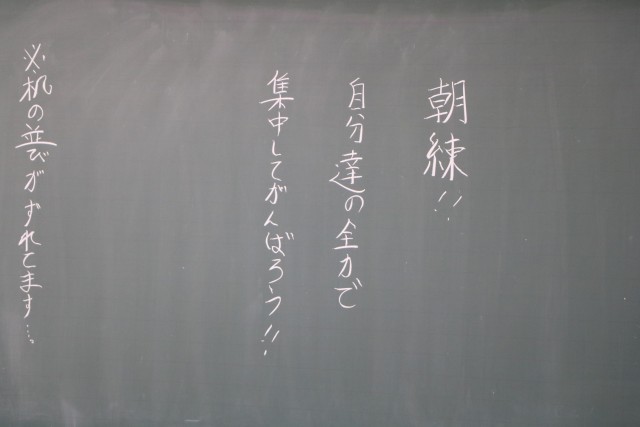 朝練!!
自分達の全力で
集中してがんばろう!!
※机の並びがずれてます…。